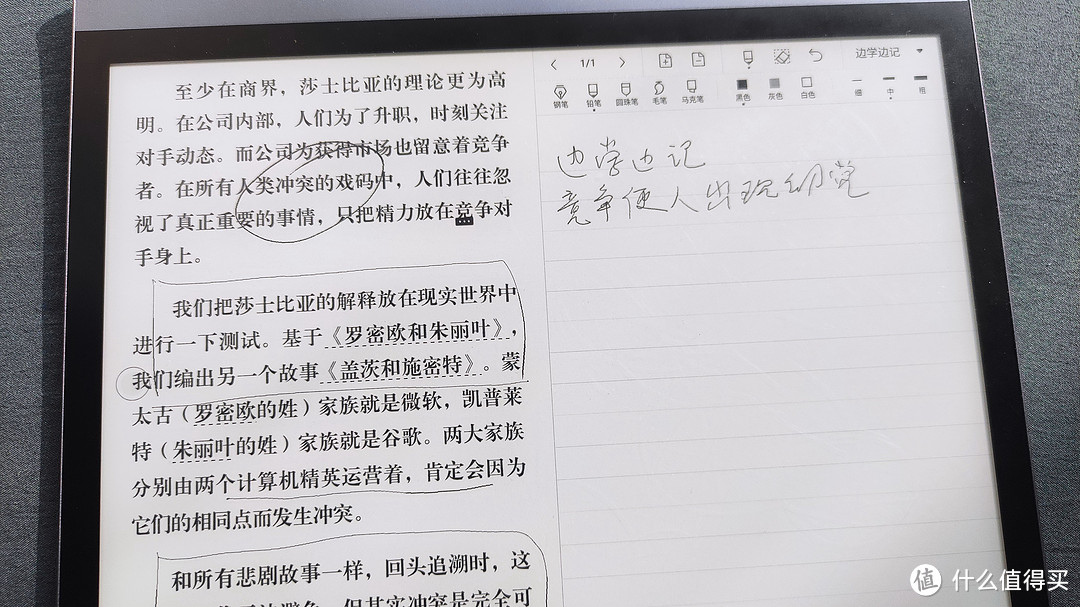 至少在商界，莎士比亚的理论更为高
明。在公司内部，人们为了升职，时刻关注
对手动态。而公司为获得市场也留意着竞争
者。在所有人类冲突的戏码中，人们往往忽
视了真正重要的事情，只把精力放在竞争对
手身上。
我们把莎士比亚的解释放在现实世界中
进行一下测试。基于《罗密欧和朱丽叶》，
我们编出另一个故事《盖茨和施密特》。蒙
太古（罗密欧的姓）家族就是微软，凯普莱
特（朱丽叶的姓）家族就是谷歌。两大家族
分别由两个计算机精英运营着，肯定会因为
它们的相同点而发生冲突。
和所有悲剧故事一样，回头追溯时，这
但其实冲突是完全可
1/1
边学边记
钢笔 铅笔 圆珠笔 毛笔 马克笔 黑色 灰色 白色 细 中 粗
边学边记
竞争使人出现幻觉
值 什么值得买